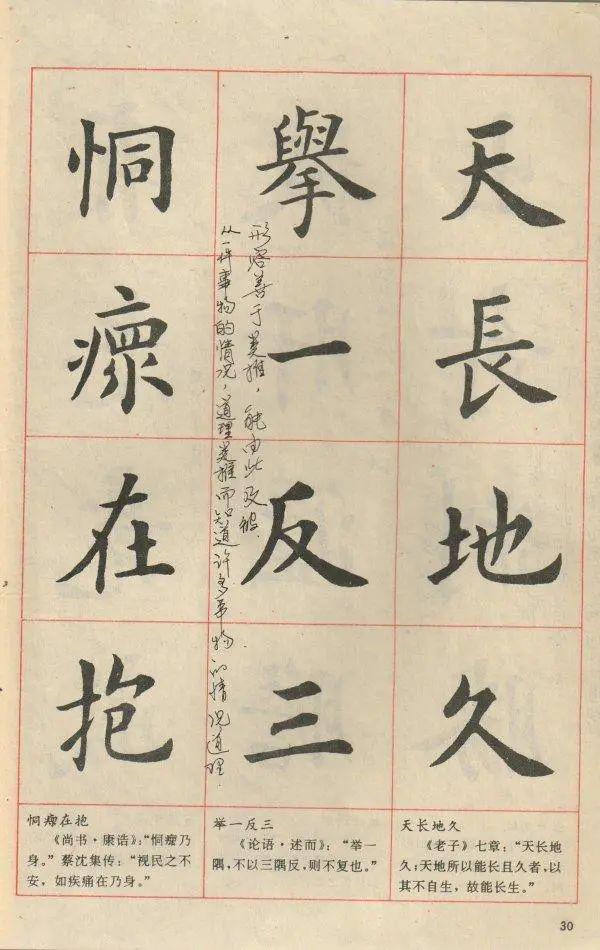 天長地久
舉一反三
恫瘝在抱
形容善于类推，能由此及彼.
从一件事物的情况，道理类推而知道许多事物的情况道理.
天长地久
《老子》七章：“天长地
久；天地所以能长且久者，以
其不自生，故能长生。”
举一反三
《论语·述而》：“举一
隅，不以三隅反，则不复也。”
恫瘝在抱
《尚书·康诰》：“恫瘝乃
身。”蔡沈集传：“视民之不
安，如疾痛在乃身。”
30